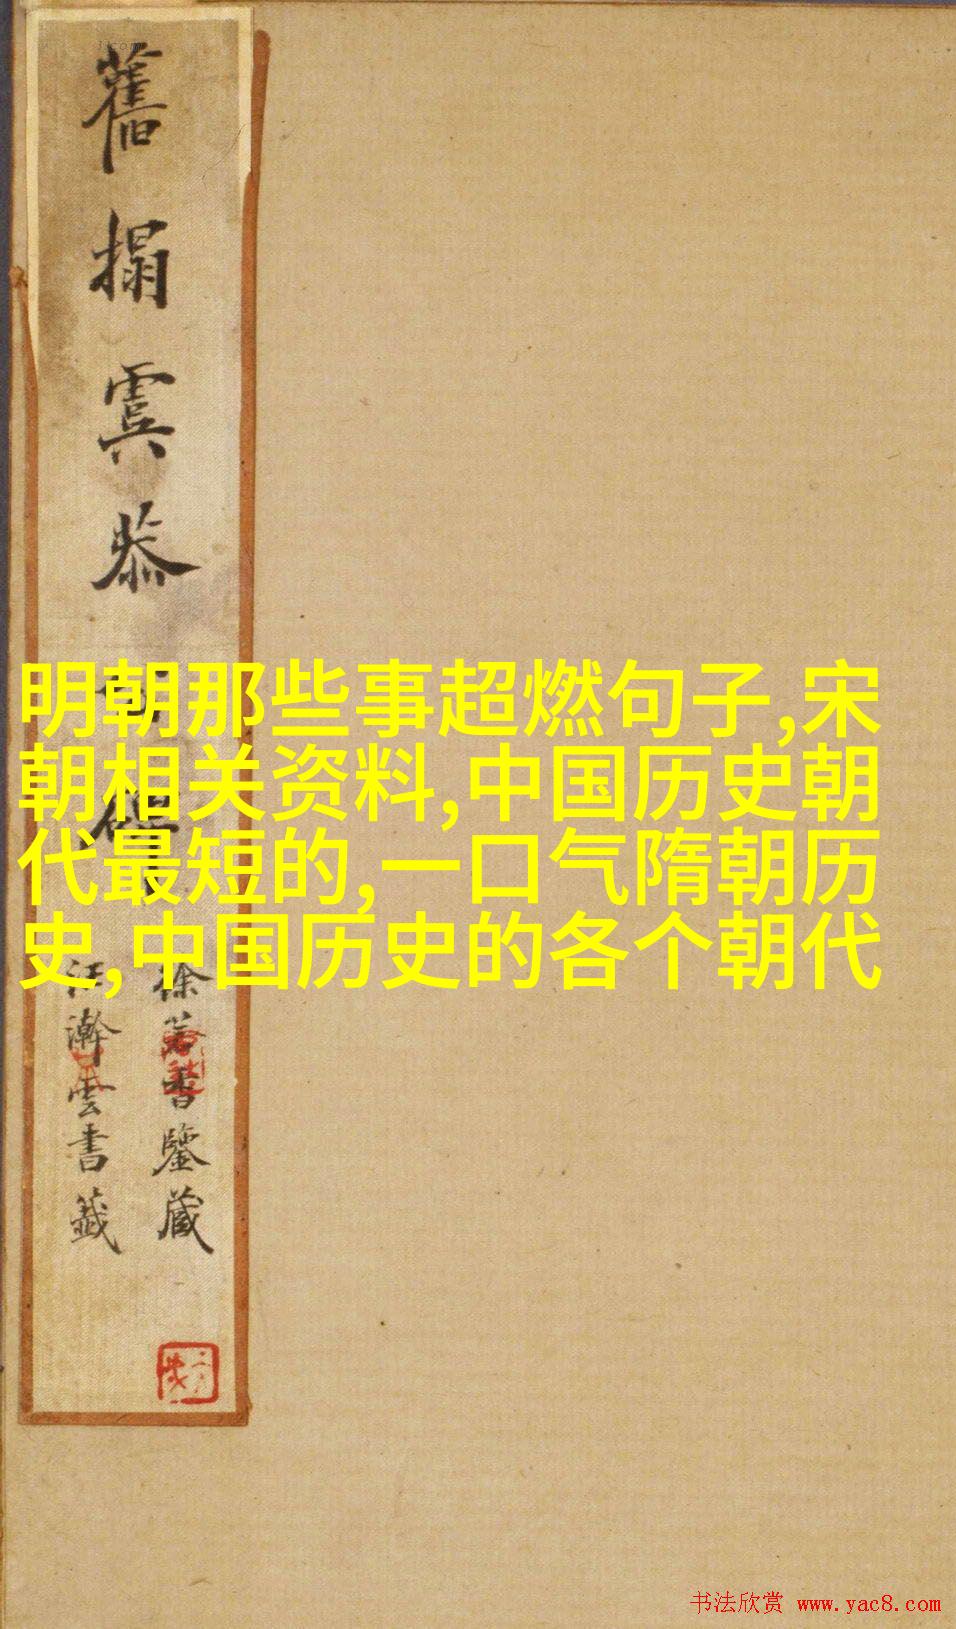 舊搨虞恭公碑
徐若書鑒藏
汪瀚雲書籤
明朝那些事超燃句子,宋
朝相关资料,中国历史朝
代最短的,一口气隋朝历
史,中国历史的各个朝代
书法欣赏 www.yac8.com